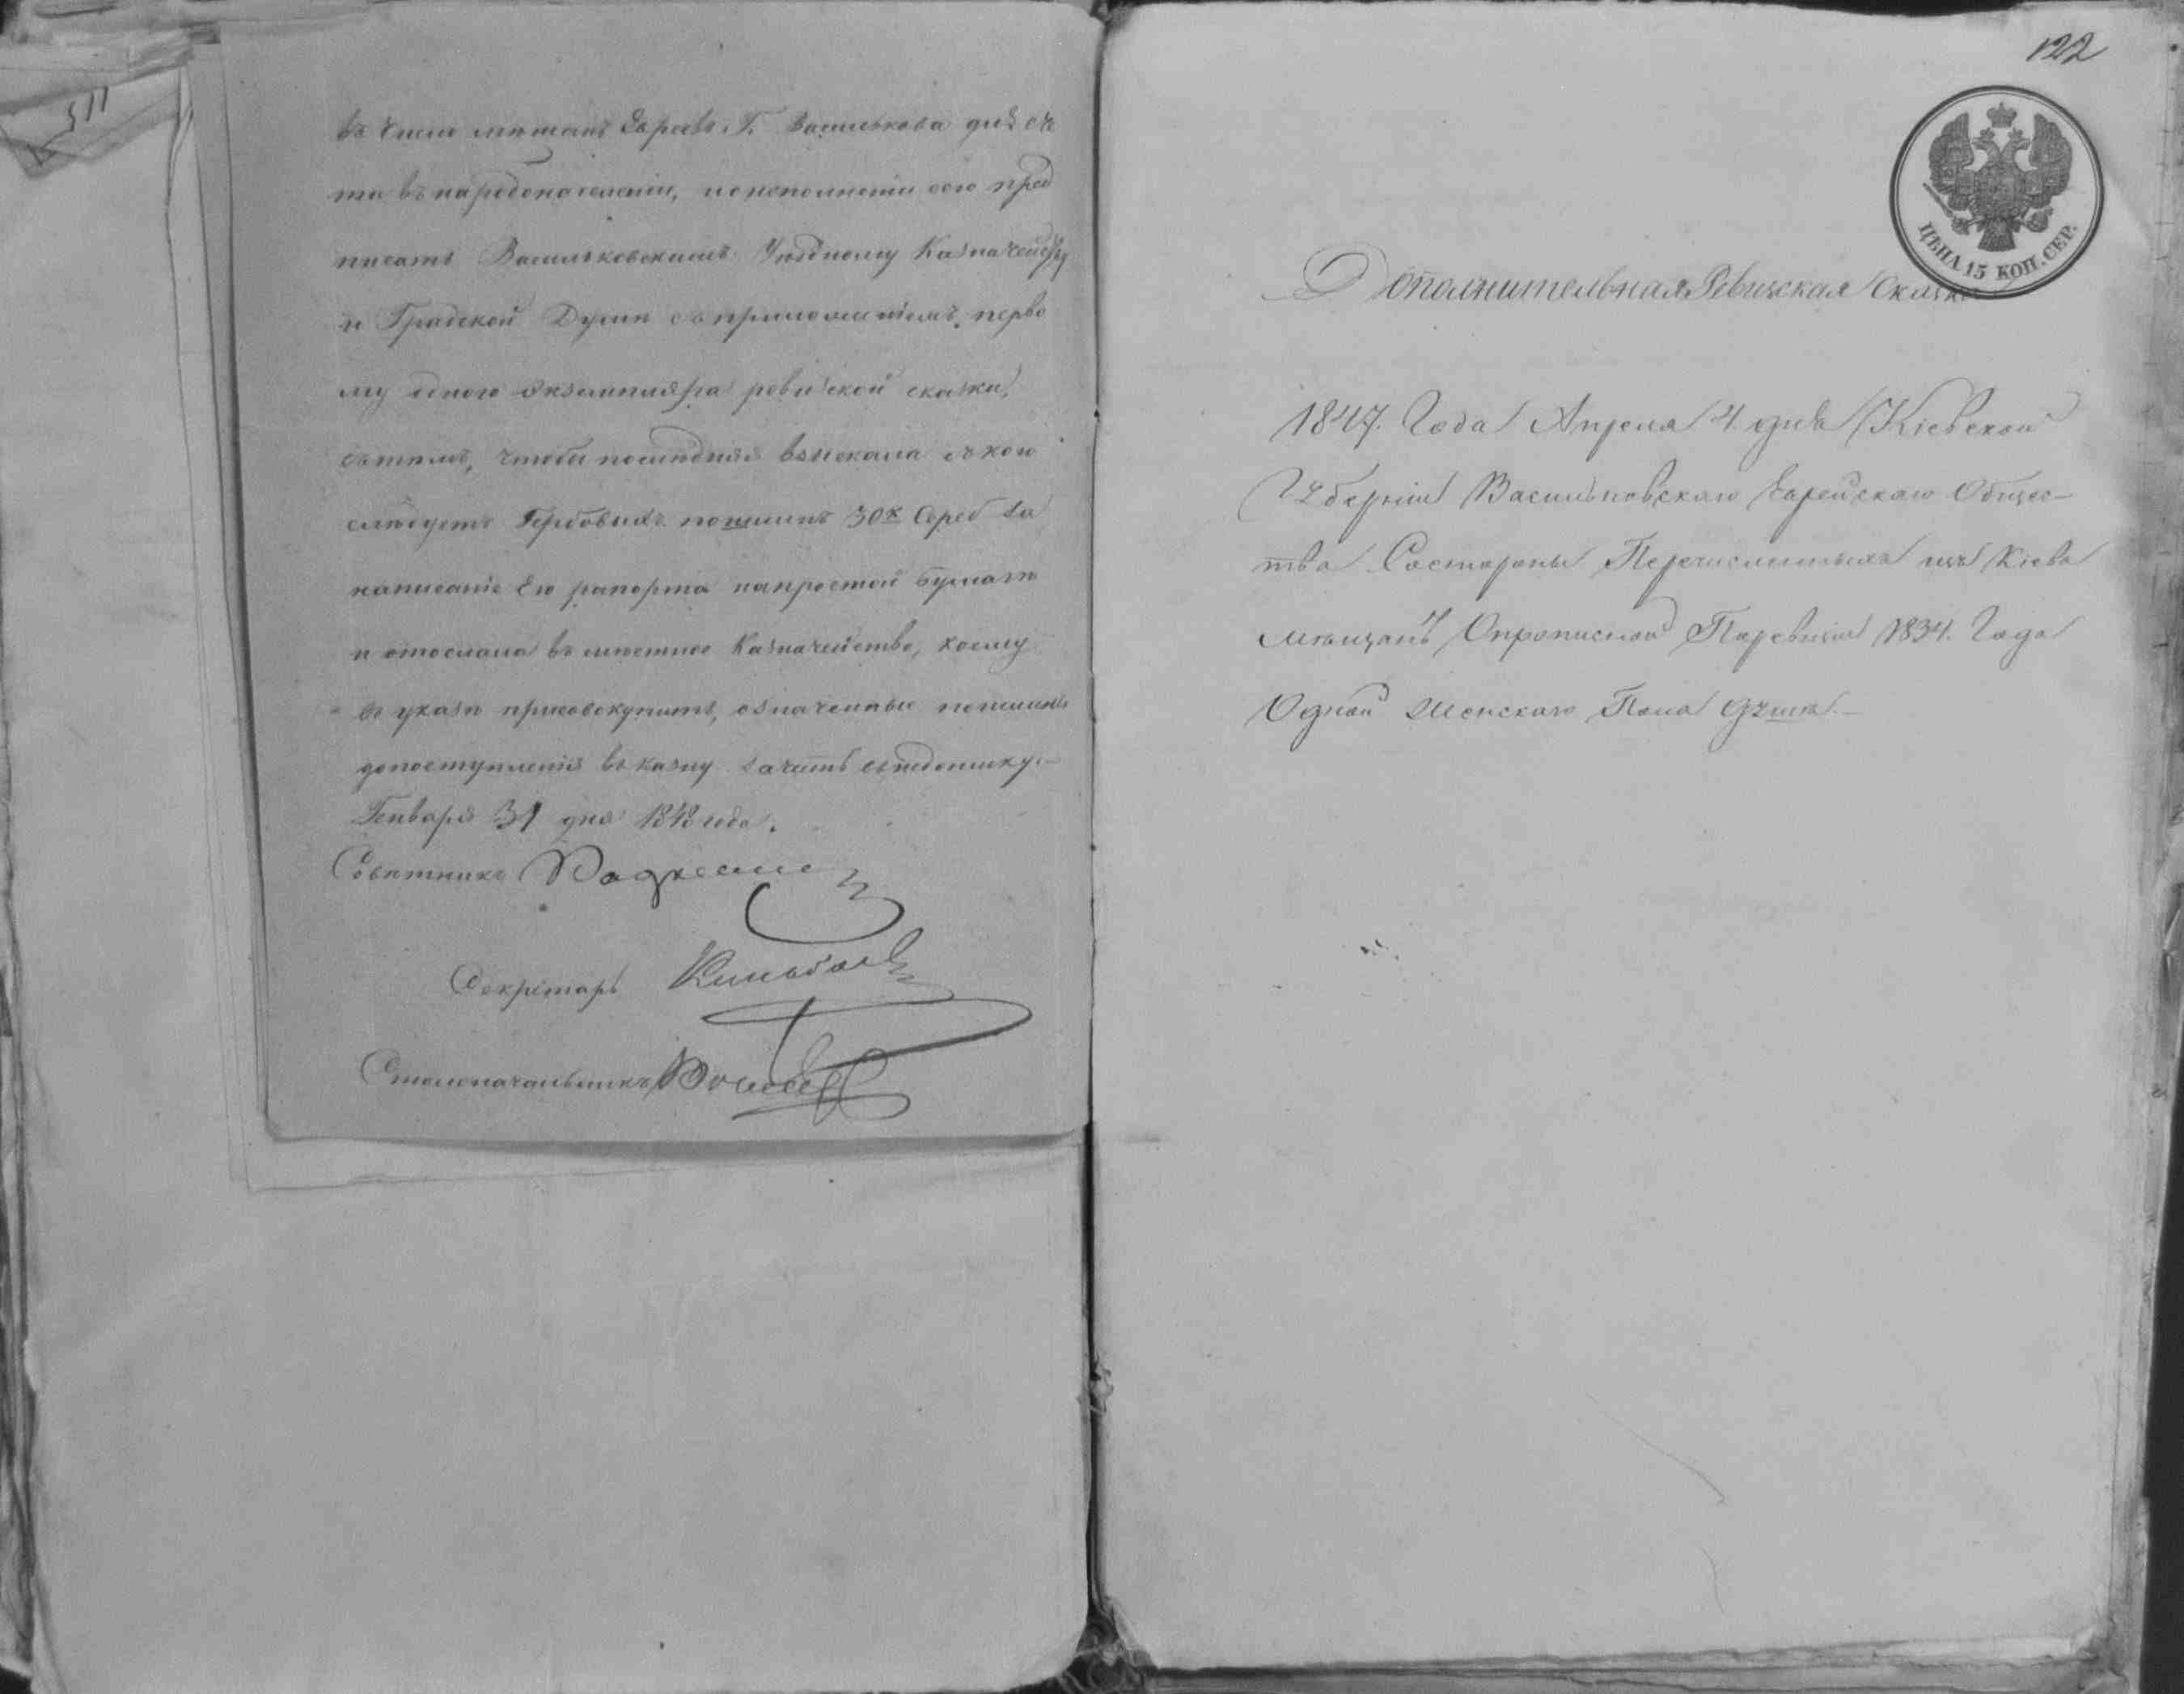 въ число мѣщанъ Евреевъ Г. Василькова для сче
та въ народонаселеніи, и о исполненіи сего пред
писать Васильковскимъ Уѣздному Казначейству
и Градской Думѣ съ приложеніемъ перво
му одного экземпляра ревизской сказки,
сътѣмъ, чтобы послѣдняя взыскала съ кого
слѣдуетъ Гербовыхъ пошлинъ 30 к Сереб за
написаніе Его рапорта на простой бумагѣ
и отослала въ мѣстное Казначейство, коему
въ указѣ присовокупить, означенные пошлины
до поступленія въ казну зачить въ недоимку.-
Генваря 31 дня 1848 года.
Совѣтникъ
Секретарь
Столоначальникъ
115
122
ЦѢНА 15 КОП. СЕР.
Дополнительная Ревизская Сказка
1847. Года Апреля 4. дня Кіевской
Губерніи Васильковскаго Еврейскаго Общес-
тва Состороны Перечисленныхъ изъ Кіева
мѣщанъ Опрописной Паревизіи 1834. Года
Одной Женскаго Пола душѣ.-